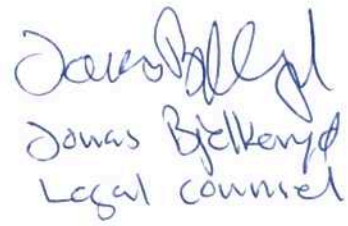 Jonas Bjelkeryd
Legal counsel